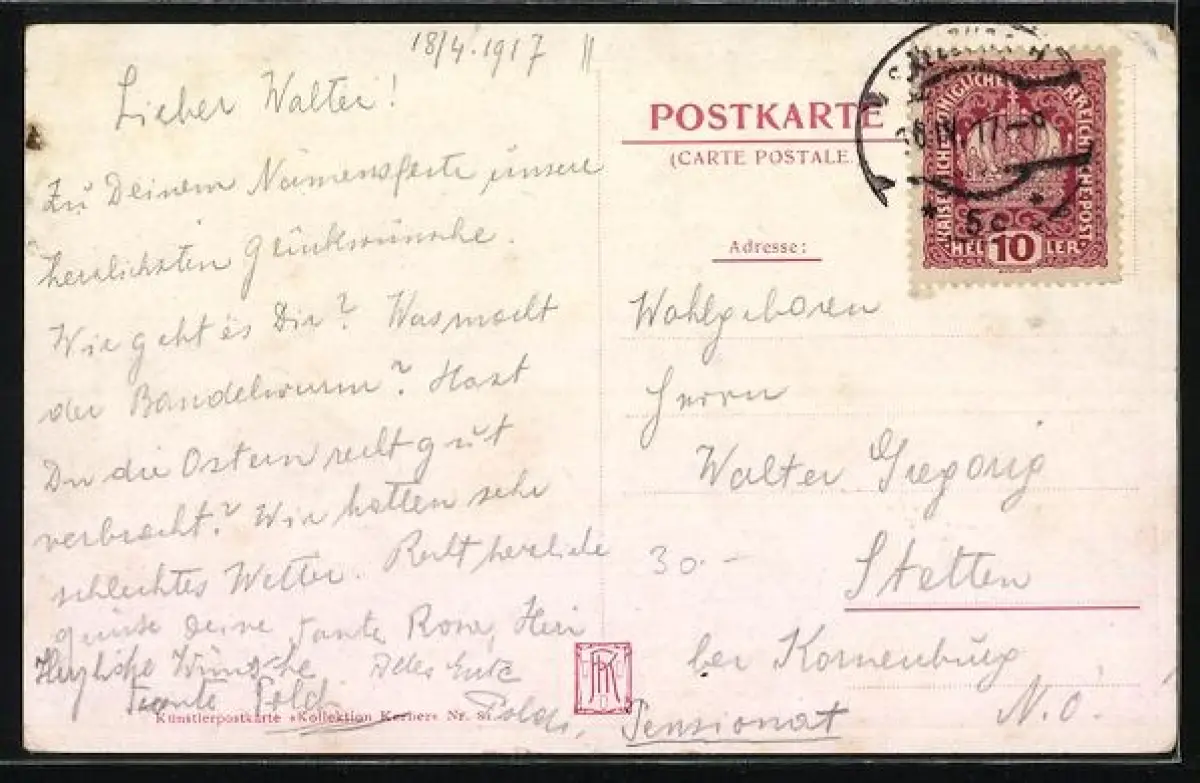 18/4.1917
Lieber Walter!
Zu Deinem Namensfeste unsere
herzlichsten Glückwünsche.
Wie geht es Dir? Was macht
der Bandelwurm? Hast
Du die Ostern recht gut
verbracht? Wir hatten sehr
schlechtes Wetter. Recht herzliche
Grüsse Deine Tante Rosa,
Herzliche Wünsche
Tante Poldi
Poldi,
Pensionat
Künstlerpostkarte «Kollektion Kerber» Nr.
POSTKARTE
(CARTE POSTALE
Adresse:
KAISERLICHE KÖNIGLICHE ÖSTERREICHISCHE POST
HELLER
10
IV 17-8
* 5c *
Wohlgeboren
Herrn
Walter Gregorig
30.-
Stetten
bei Korneuburg
N.Ö.